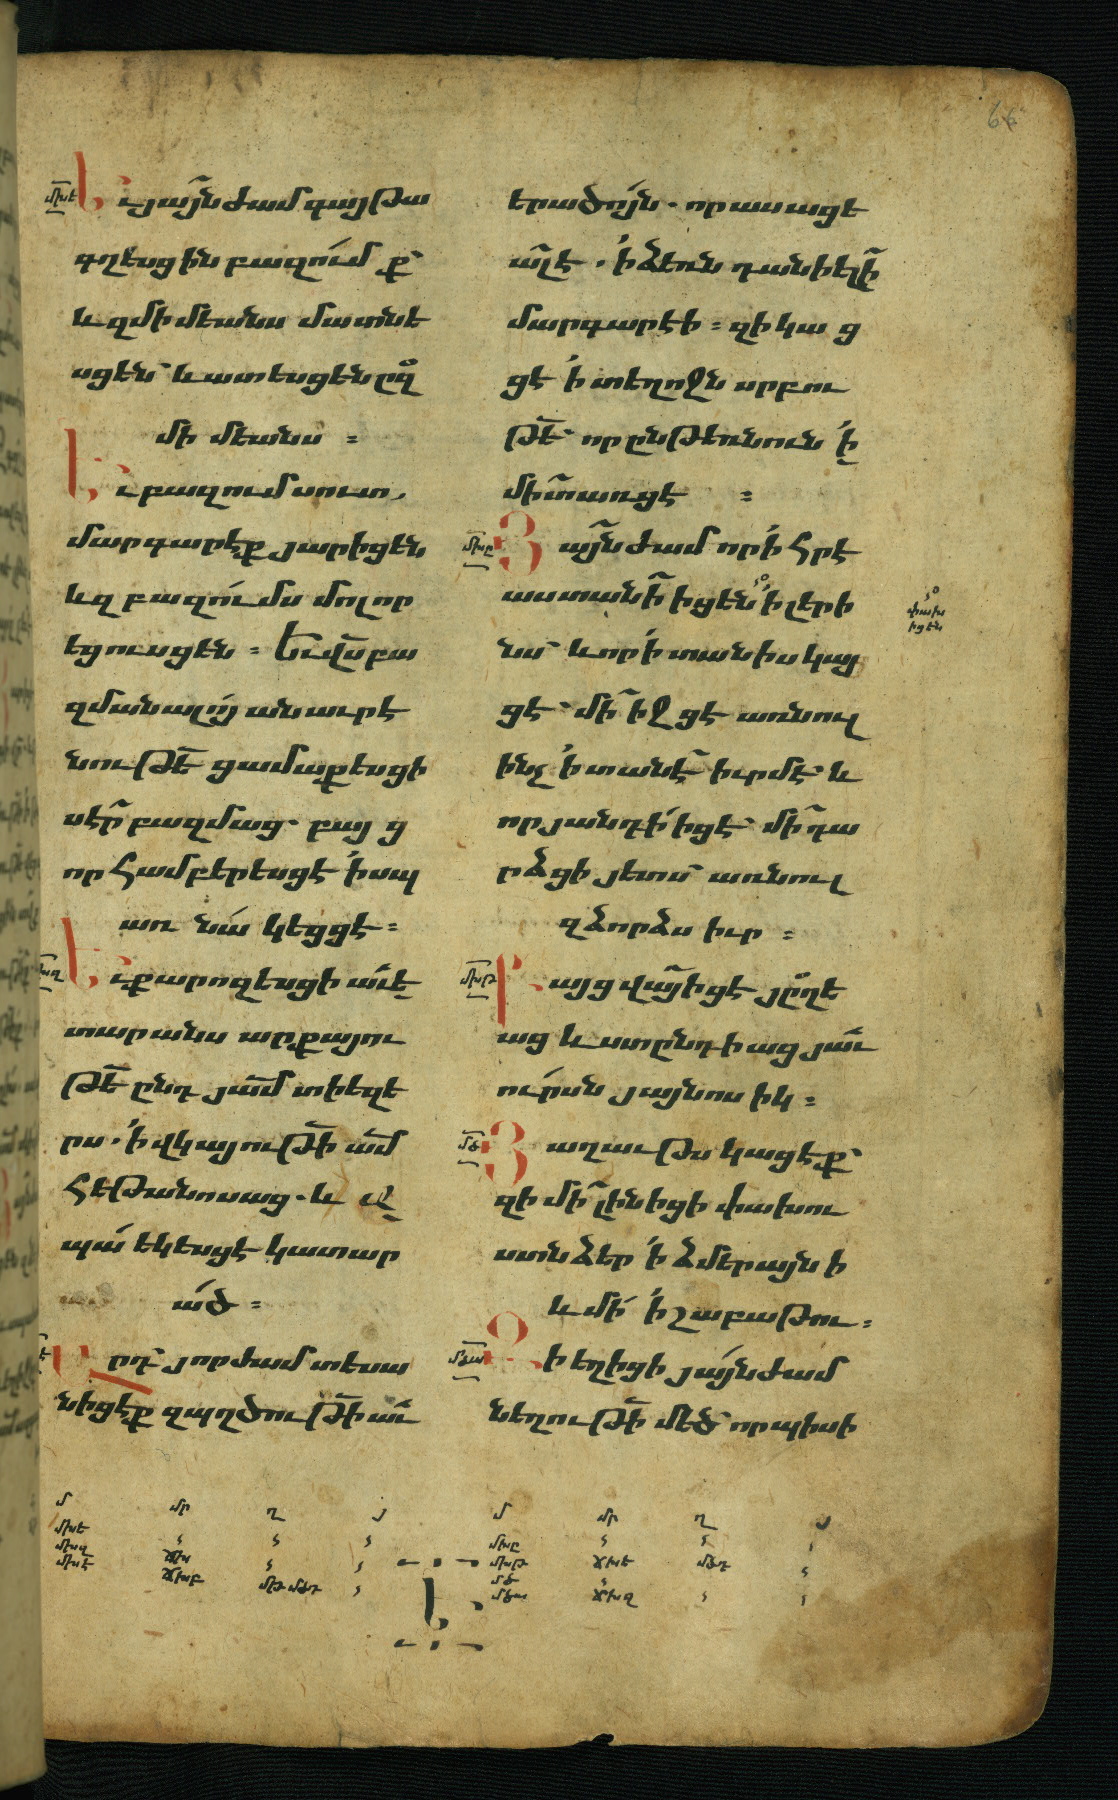 66
մխե
Եւ յայ՟նժամ գայթա
գղեսցին բազում ք՟
և զմիմեանս մատնե
սցեն՝ և ատեսցեն ըզ՟
մի մեանս ։
Եւ բազում սուտ
մարգարէք յարիցեն
և զբազումս մոլոր
եցուսցեն ։ Եւ վ՟ս բա
զմանալոյ անաւրէ
նութե՟ ցամաքեսցի
սէր՟ բազմաց · բայց
որ համբերեսցէ ՛ի սպ
առ նա՛ կեցցէ ։
մխզ
Եւ քարոզեսցի ա՟ւե
տարանս արքայու
թե՟ ընդ յա՟մ տիեզե
րս · ՛ի վկայութի՟ ա՟մ
հեթանոսաց · և ա՟
պա՛ եկեսցէ կատար
ա՛ծ ։
Արդ՝ յորժամ տեսա
նիցէք զպղծութի՟ ա՟ւ
երածոյն · որ ասացե
ա՟լէ · ՛ի ձեռն դանիելի՟
մարգարէի ։ զի կայց
ցէ ՛ի տեղոջն սրբու
թե՟ · որ ընթեռնուն ՛ի
մի՟տառցէ ։
մխը
Յայ՟նժամ որ ՛ի հրէ
աստանի՟ իցեն՝ ՛ի լերի
նս՝ և որ ՛ի տանիս կայ
ցէ՝ մի՟ իջցէ առնուլ
ինչ ՛ի տանէ՟ իւրմէ՝ և
որ յանդի՛ իցէ՝ մի՟ դա
րձցի յետս՝ առնուլ
զձորձս իւր ։
փախ
իցեն
մխթ
Բայց վա՟յ իցէ յը՟ղե
աց և ստընդիաց յա՟ւ
ուրսն յայնոսիկ ։
մծ
Յաղաւթս կացէք՝
զի մի՟ լինիցի փախու
ստն ձեր ՛ի ձմերայնի
և մի՛ ՛ի շաբաթու ։
մծա
Զի եղիցի յայնժամ
նեղութի՟ մեծ՝ որպիսի
մ մր ղ յ
մխե
մխզ
մխէ
ճխբ
մ մր ղ յ
մխը
մխթ ճխե մծդ
մծ
մծա ճխզ